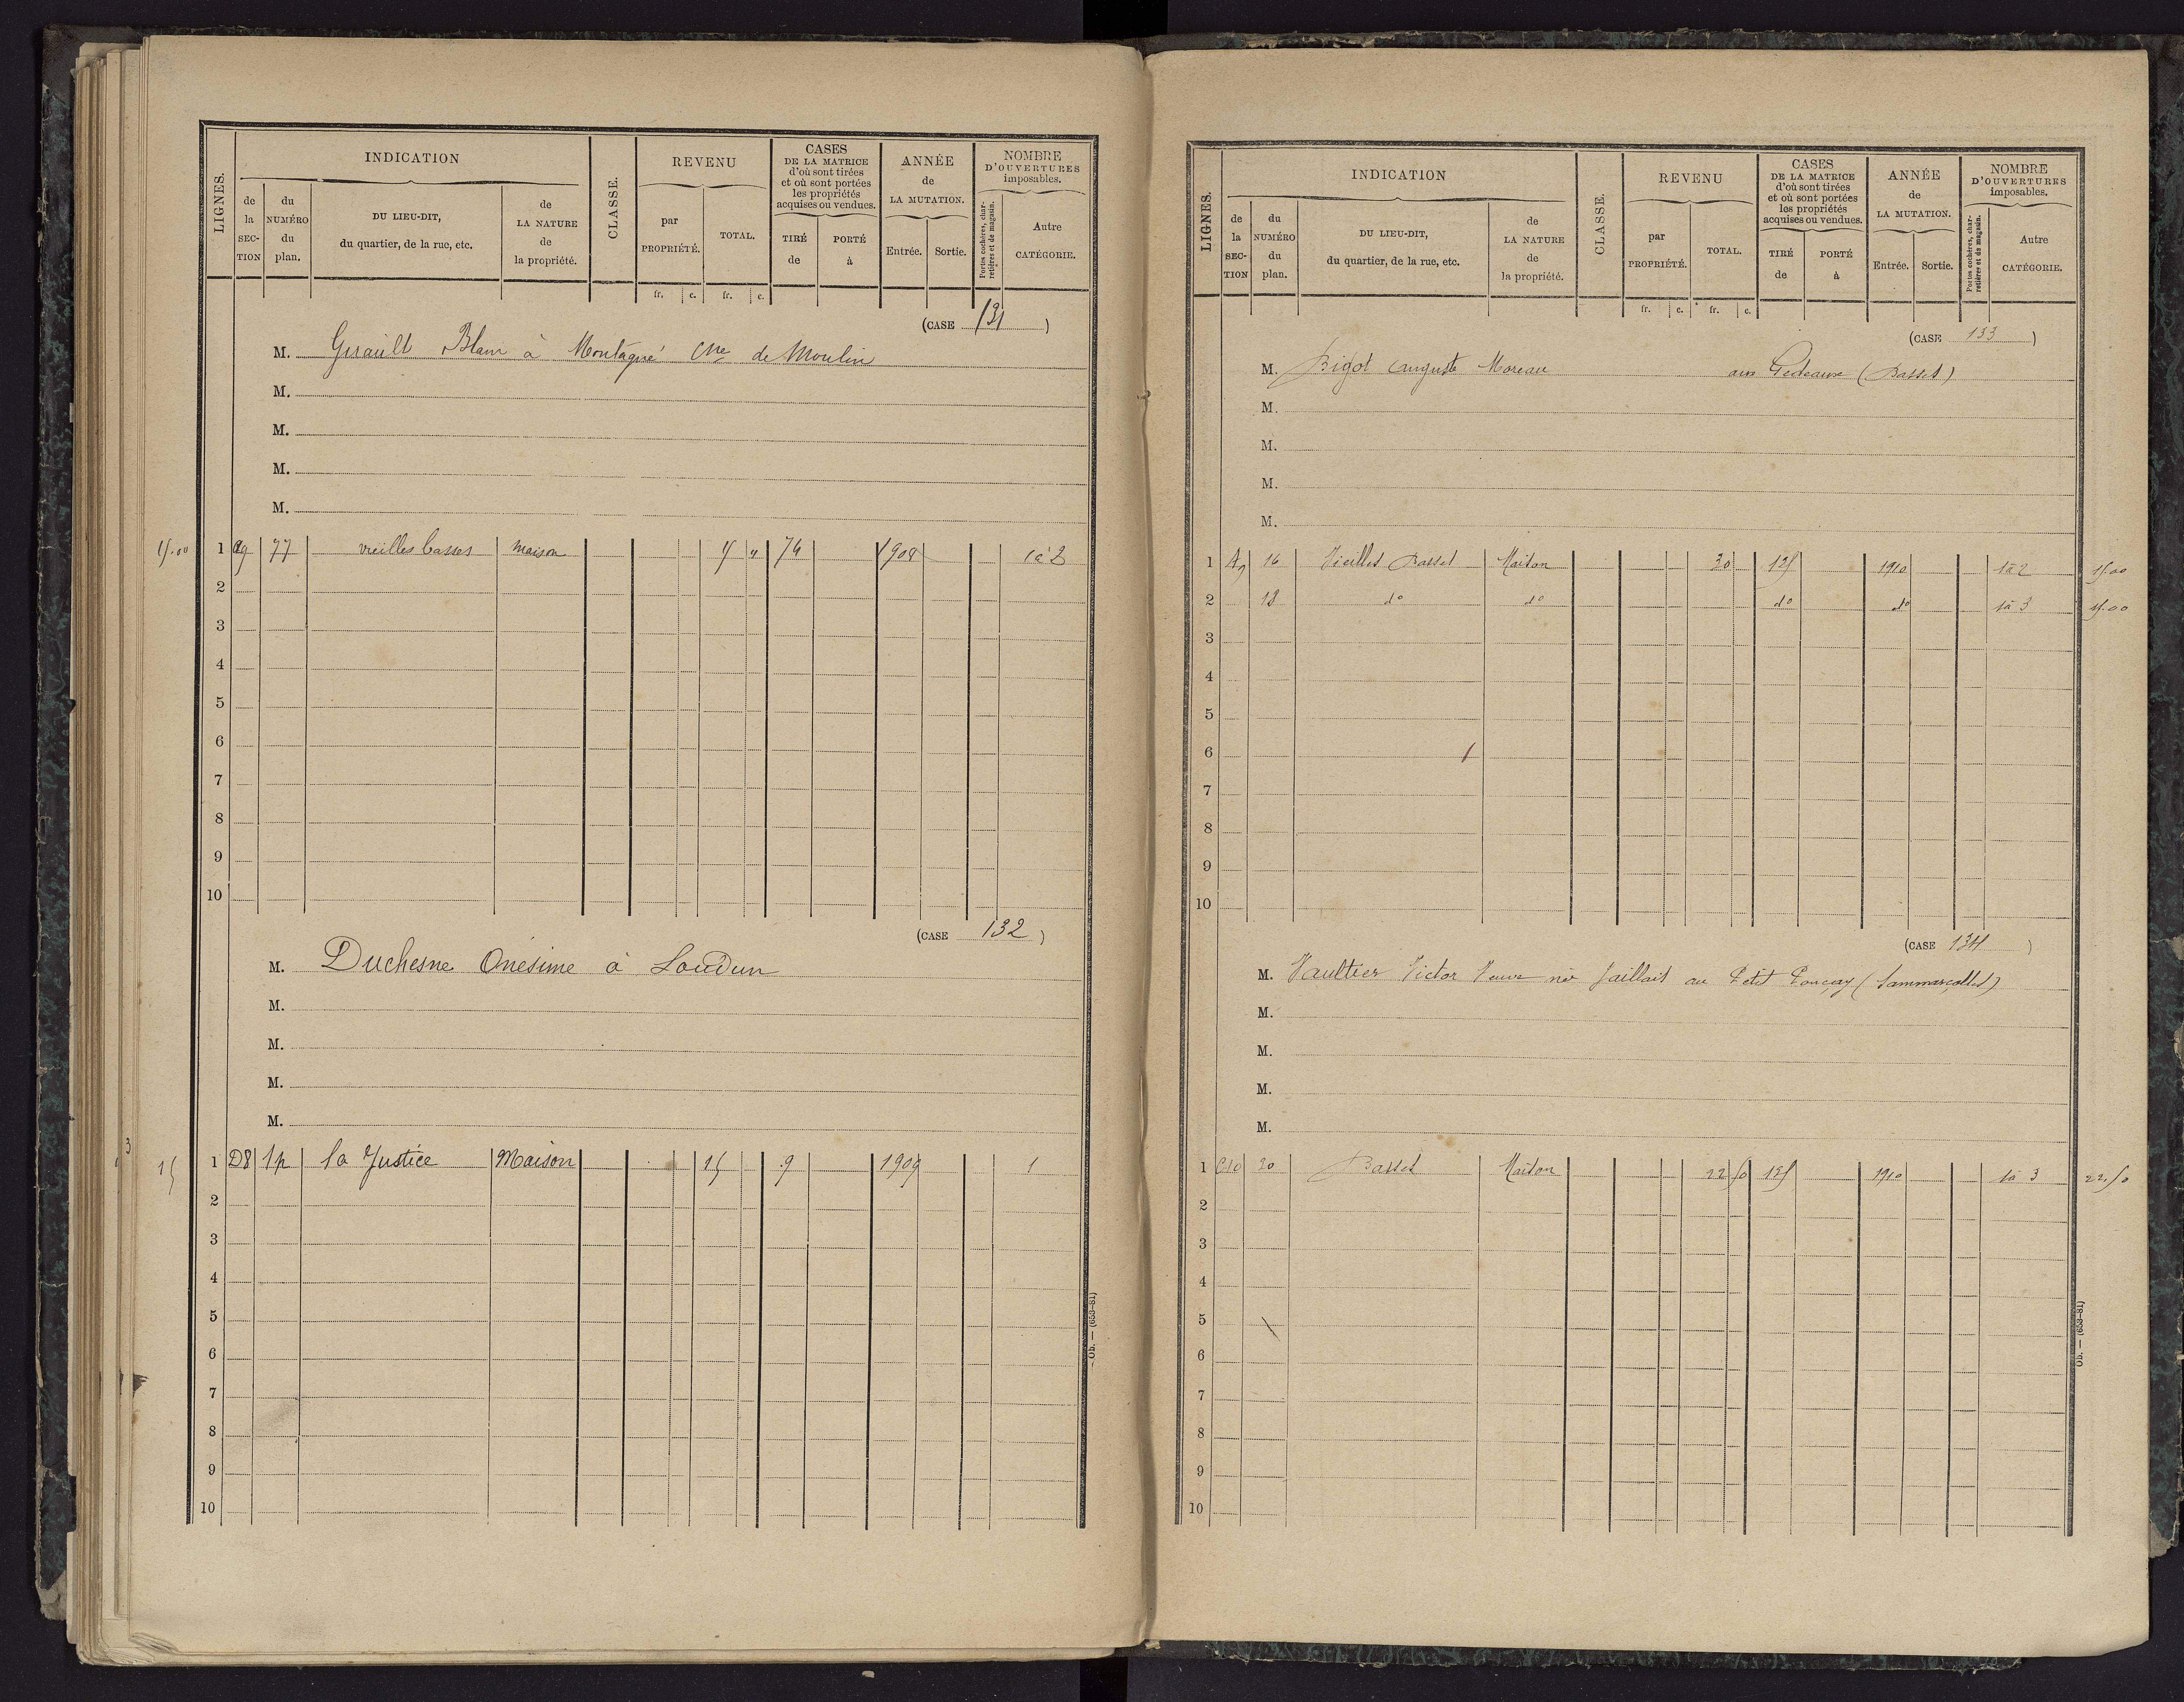 LIGNES.
INDICATION
de la SECTION
du NUMÉRO du plan.
DU LIEU-DIT, du quartier, de la rue, etc.
de LA NATURE de la propriété.
CLASSE.
REVENU
par PROPRIÉTÉ.
TOTAL.
CASES DE LA MATRICE d'où sont tirées et où sont portées les propriétés acquises ou vendues.
TIRÉ de
PORTÉ à
ANNÉE de LA MUTATION.
Entrée.
Sortie.
NOMBRE D'OUVERTURES imposables.
Portes cochères, charretières et de magasin.
Autre CATÉGORIE.
fr. c. fr. c.
(CASE 131 )
M. Girault Blain à Montagné Cne de Moulin
M.
M.
M.
M.
1 77 vieilles basses maison 74 1908 1 à 2
2
3
4
5
6
7
8
9
10
(CASE 132 )
M. Duchesne Onésime à Loudun
M.
M.
M.
M.
15 1 D8 1p la Justice Maison 15 9 1909 1
2
3
4
5
6
7
8
9
10
Ob. — (653-81)
LIGNES.
INDICATION
de la SECTION
du NUMÉRO du plan.
DU LIEU-DIT, du quartier, de la rue, etc.
de LA NATURE de la propriété.
CLASSE.
REVENU
par PROPRIÉTÉ.
TOTAL.
CASES DE LA MATRICE d'où sont tirées et où sont portées les propriétés acquises ou vendues.
TIRÉ de
PORTÉ à
ANNÉE de LA MUTATION.
Entrée.
Sortie.
NOMBRE D'OUVERTURES imposables.
Portes cochères, charretières et de magasin.
Autre CATÉGORIE.
fr. c. fr. c.
(CASE 133 )
M. Bigot Auguste Moreau aux Gedeaux (Basses)
M.
M.
M.
M.
1 16 Vieilles Basses Maison 30 125 1910 1 à 2 15.00
2 18 do do do do 1 à 3 15.00
3
4
5
6
7
8
9
10
(CASE 134 )
M. Vaultier Victor Veuve née Jaillais au Petit Ponçay (Sammarçolles)
M.
M.
M.
M.
1 C10 20 Basses Maison 22 50 125 1910 1 à 3 22.50
2
3
4
5
6
7
8
9
10
Ob. — (653-81)